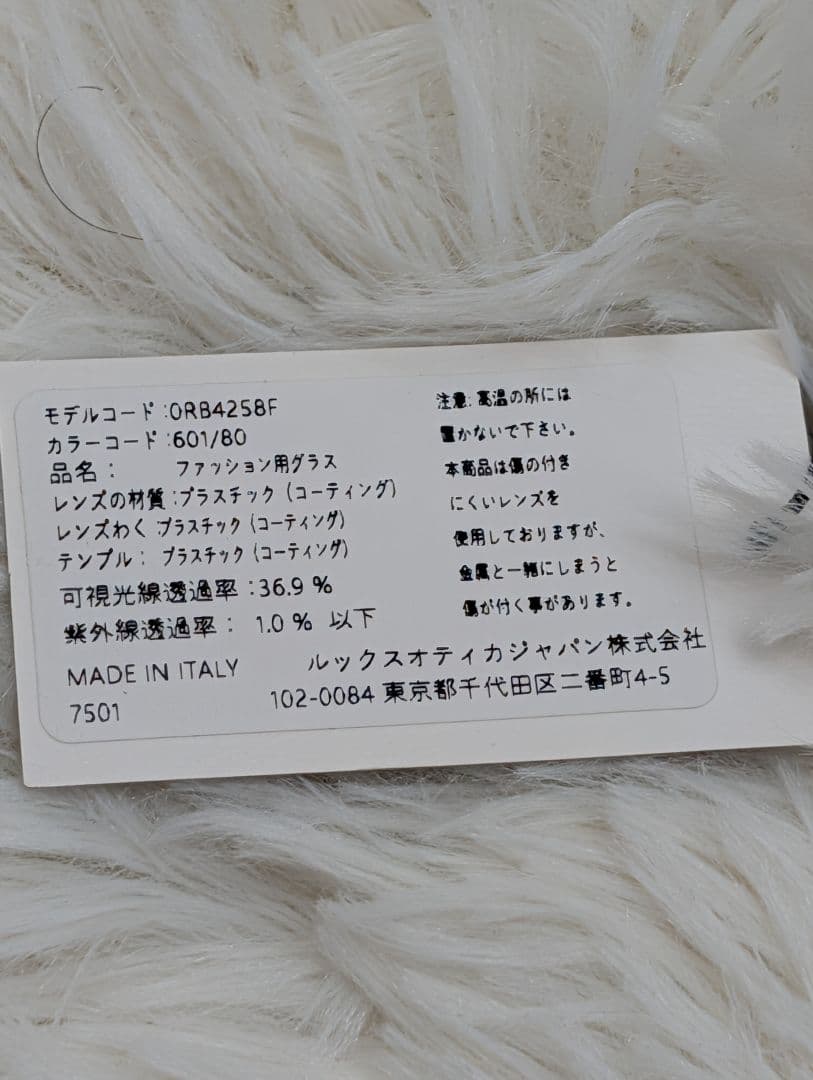 モデルコード:0RB4258F
カラーコード:601/80
品名: ファッション用グラス
レンズの材質:プラスチック(コーティング)
レンズわく:プラスチック(コーティング)
テンプル: プラスチック(コーティング)
可視光線透過率:36.9 %
紫外線透過率: 1.0 % 以下
MADE IN ITALY
7501
注意:高温の所には
置かないで下さい。
本商品は傷の付き
にくいレンズを
使用しておりますが、
金属と一緒にしまうと
傷が付く事があります。
ルックスオティカジャパン株式会社
102-0084 東京都千代田区二番町4-5